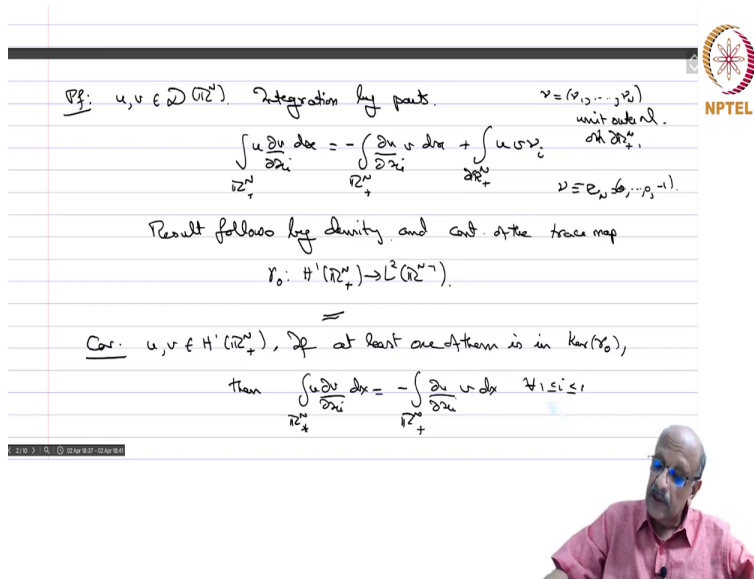 Pf: u, v ∈ 𝒟(ℝᴺ). Integration by parts.
ν = (ν₁, ..., ν_N)
unit outer nl.
on ∂ℝᴺ₊.
∫_{ℝᴺ₊} u ∂v/∂xᵢ dx = - ∫_{ℝᴺ₊} ∂u/∂xᵢ v dx + ∫_{∂ℝᴺ₊} u v νᵢ
ν ≡ e_N = (0, ..., 0, -1).
Result follows by density and cont. of the trace map
γ₀: H¹(ℝᴺ₊) → L²(ℝᴺ⁻¹).
Cor. u, v ∈ H¹(ℝᴺ₊), If at least one of them is in Ker(γ₀),
then ∫_{ℝᴺ₊} u ∂v/∂xᵢ dx = - ∫_{ℝᴺ₊} ∂u/∂xᵢ v dx ∀ 1 ≤ i ≤
NPTEL
2 / 10 02 Apr 18:37 - 02 Apr 18:41